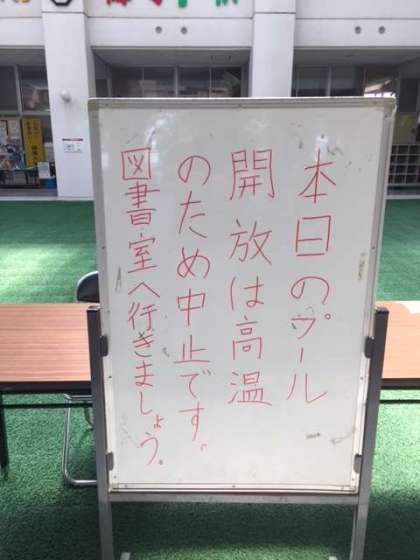 本日のプール
開放は高温
のため中止です。
図書室へ行きましょう。